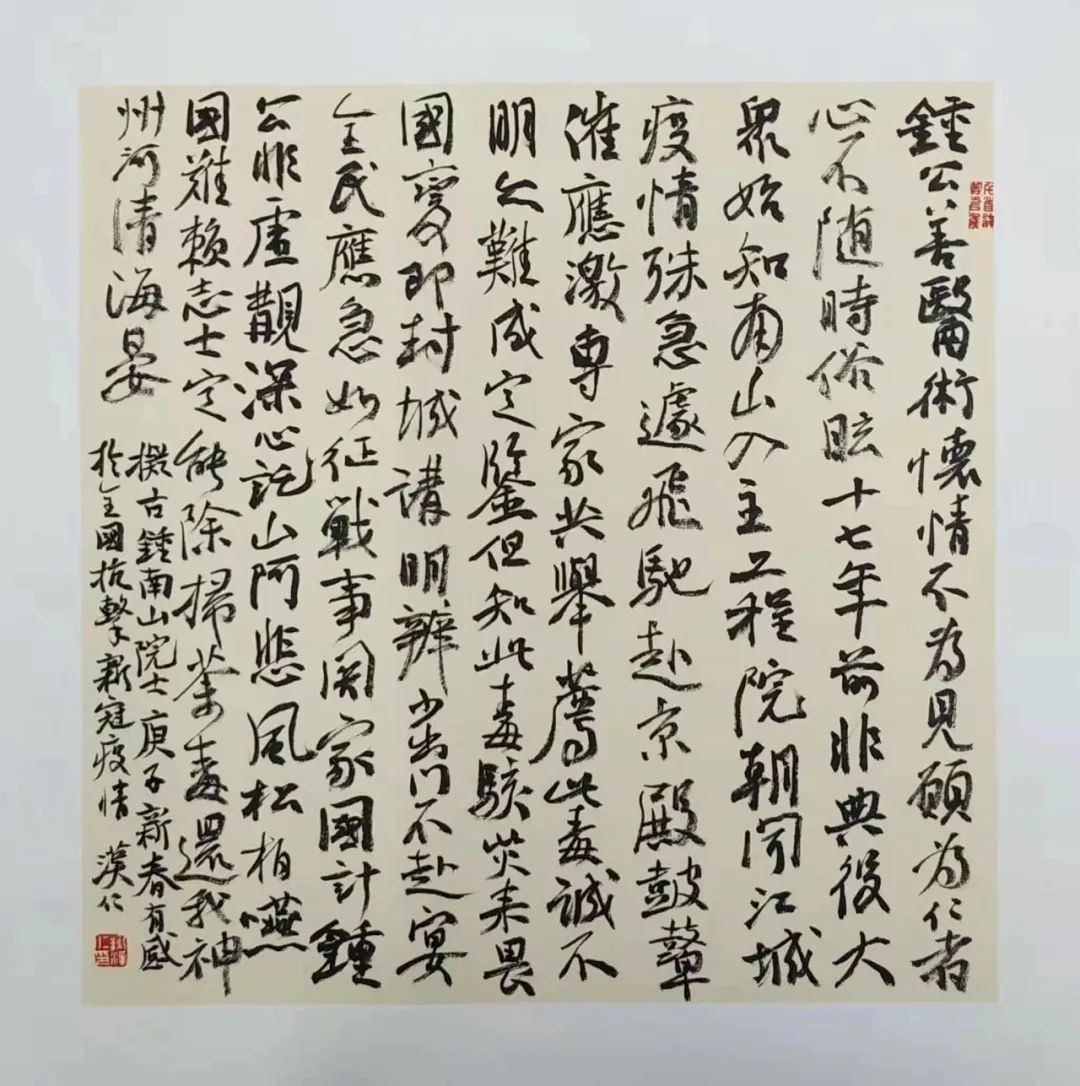 鍾公善醫術懷情不為見願為仁者
心不随時俗眩十七年前非典後大
眾始知南山入主工程院朝闻江城
疫情殊急遽飛馳赴京殿鼓鼙
催應激専家共舉薦此毒誠不
明亦難成定鑒但知此毒駭災来畏
國變即封城講明辨少出门不赴宴
全民應急如征戰事関家國計鍾
公非虚觀深心託山阿悲風松柏嚥
國難賴志士定能除掃荼毒還我神
州河清海晏
擬古鍾南山院士庚子新春有感
於全國抗擊新冠疫情 漢仁